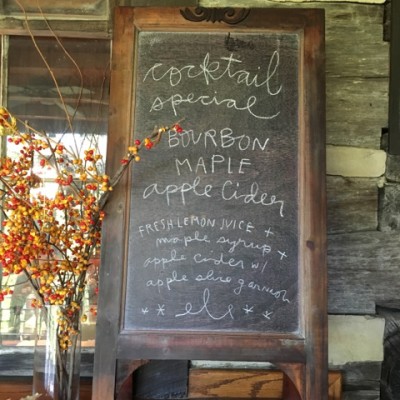 cocktail
special
BOURBON
MAPLE
apple Cider
FRESH LEMON JUICE +
maple syrup +
apple cider w/
apple slice garnish